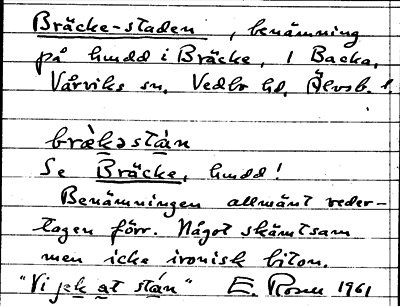 Bräcke-staden, benämning
på hmdd i Bräcke, 1 Backa,
Vårviks sn, Vedbo hd, Älvsb. l.
brè̀kəstán
Se Bräcke, hmdd!
Benämningen allmänt veder-
tagen förr. Något skämtsam
men icke ironisk biton.
"Vi jek at stán" E. Rosen 1961